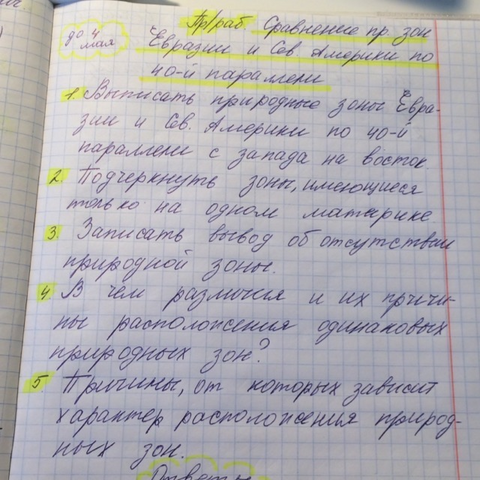 до 4 мая
Пр/раб. Сравнение пр. зон
Евразии и Сев Америки по
40-й параллели
1. Выписать природные зоны Евра-
зии и Сев. Америки по 40-й
параллели с запада на восток.
2. Подчеркнуть зоны, имеющиеся
только на одном материке
3. Записать вывод об отсутствии
природной зоны.
4. В чем различия и их причи-
ны расположения одинаковых
природных зон?
5 Причины, от которых зависит
характер расположения природ-
ных зон.
Ответы